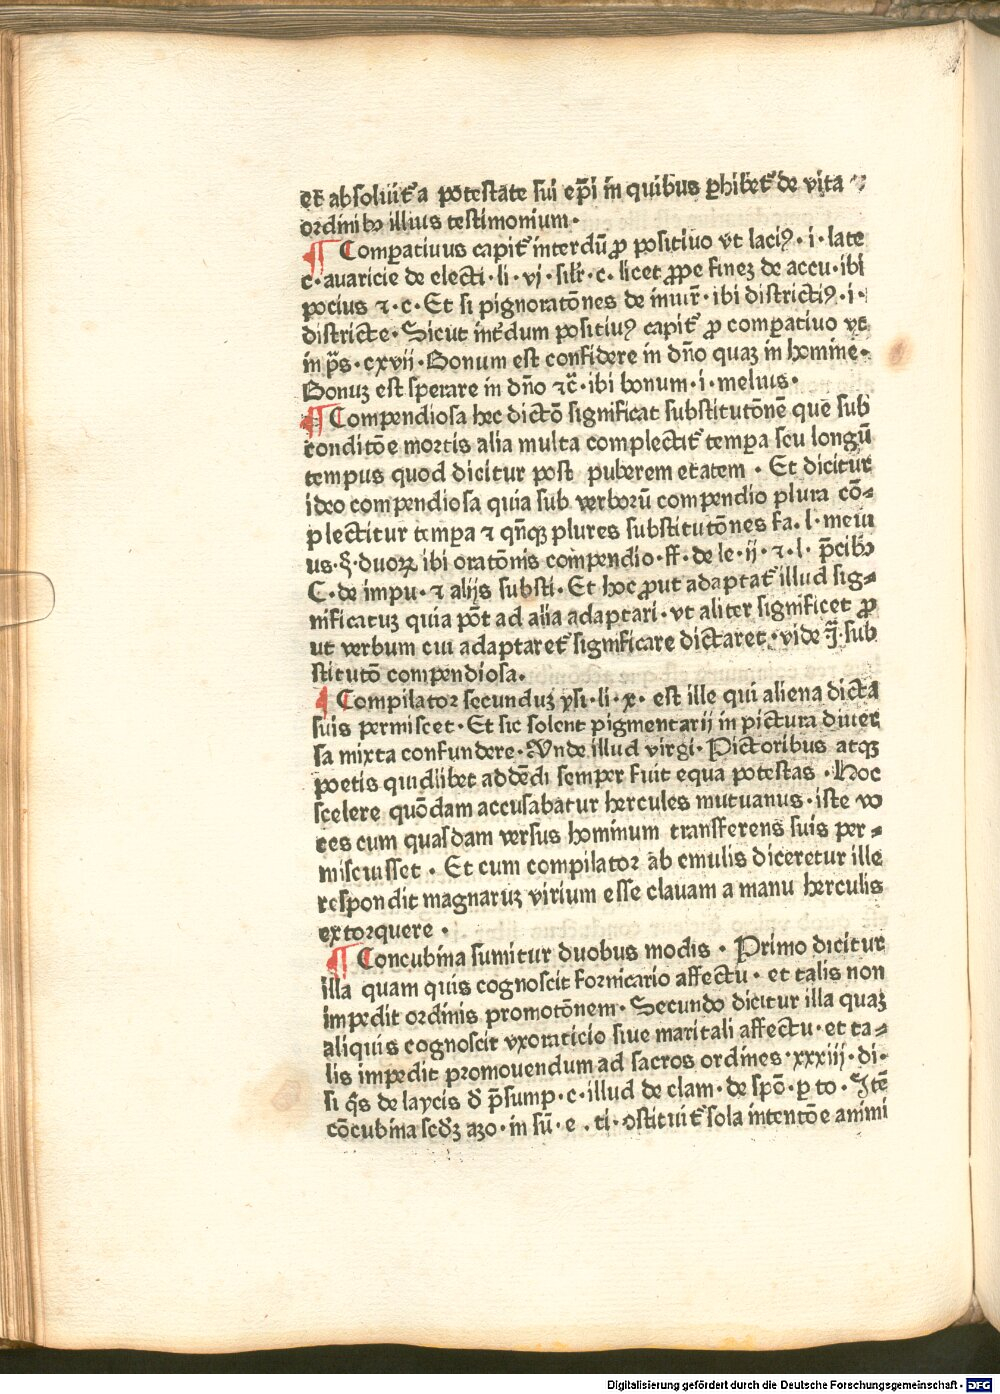 et absoluit᷑ a potestate sui ep̄i in quibus ꝑhibet᷑ de vita ⁊
ordinibꝫ illius testimonium·
¶ Comꝑatiuus capit᷑ interdū ꝓ positiuo vt laciꝰ·i·late
c·auaricie de electi·li·vj·silr̄·c·licet ꝓpe finez de accu·ibi
pocius ⁊·c·Et si pignoratōnes de iniur̄·ibi districtiꝰ·i·
districte·Sicut int᷑dum positiuꝰ capit᷑ ꝓ comꝑatiuo vt
in p̄s·cxvii·Bonum est confidere in dño quaꝫ in homine·
Bonuz est sperare in dño ⁊c̄·ibi bonum·i·melius·
¶ Compendiosa hec dictō significat substitutōnē que sub
conditōe mortis alia multa complectit᷑ temꝑa seu longū
tempus quod dicitur post puberem etatem·Et dicitur
ideo compendiosa quia sub verborū compendio plura cō-
plectitur temꝑa ⁊ qn̄qꝫ plures substitutōnes fa·l·meui
us·§·duoꝝ ibi oratōnis compendio·ff·de le·ii·⁊·l·p̄cibꝫ
C·de impu·⁊ alijs substi·Et hoc ꝓut adaptat᷑ illud sig-
nificatuꝫ quia pōt ad alia adaptari·vt aliter significet ꝓ
ut verbum cui adaptaret᷑ significare dictaret·vide j̄·sub
stitutō compendiosa·
¶ Compilator secunduꝫ ysi·li·x·est ille qui aliena dicta
suis permiscet·Et sic solent pigmentarij in pictura diuer
sa mixta confundere·Vnde illud virgi·Pictoribus atqꝫ
poetis quidlibet addēdi semper fuit equa potestas·Hoc
scelere quōdam accusabatur hercules mutuanus·iste vo
ces cum quasdam versus hominum transferens suis per-
miscuisset·Et cum compilator ab emulis diceretur ille
respondit magnaruꝫ virium esse clauam a manu herculis
extorquere·
¶ Concubina sumitur duobus modis·Primo dicitur
illa quam quis cognoscit fornicario affectu·et talis non
impedit ordinis promotōnem·Secundo dicitur illa quaꝫ
aliquis cognoscit vxoraticio siue maritali affectu·et ta-
lis impedit promouendum ad sacros ordines·xxxiii·di·
si q̄s de laycis d̄ p̄sump·c·illud de clam·de spō·ꝑ to·Itē
cōcubina scdꝫ azo·in sū·e·ti·ꝯstituit᷑ sola intentōe animi
Digitalisierung gefördert durch die Deutsche Forschungsgemeinschaft - DFG